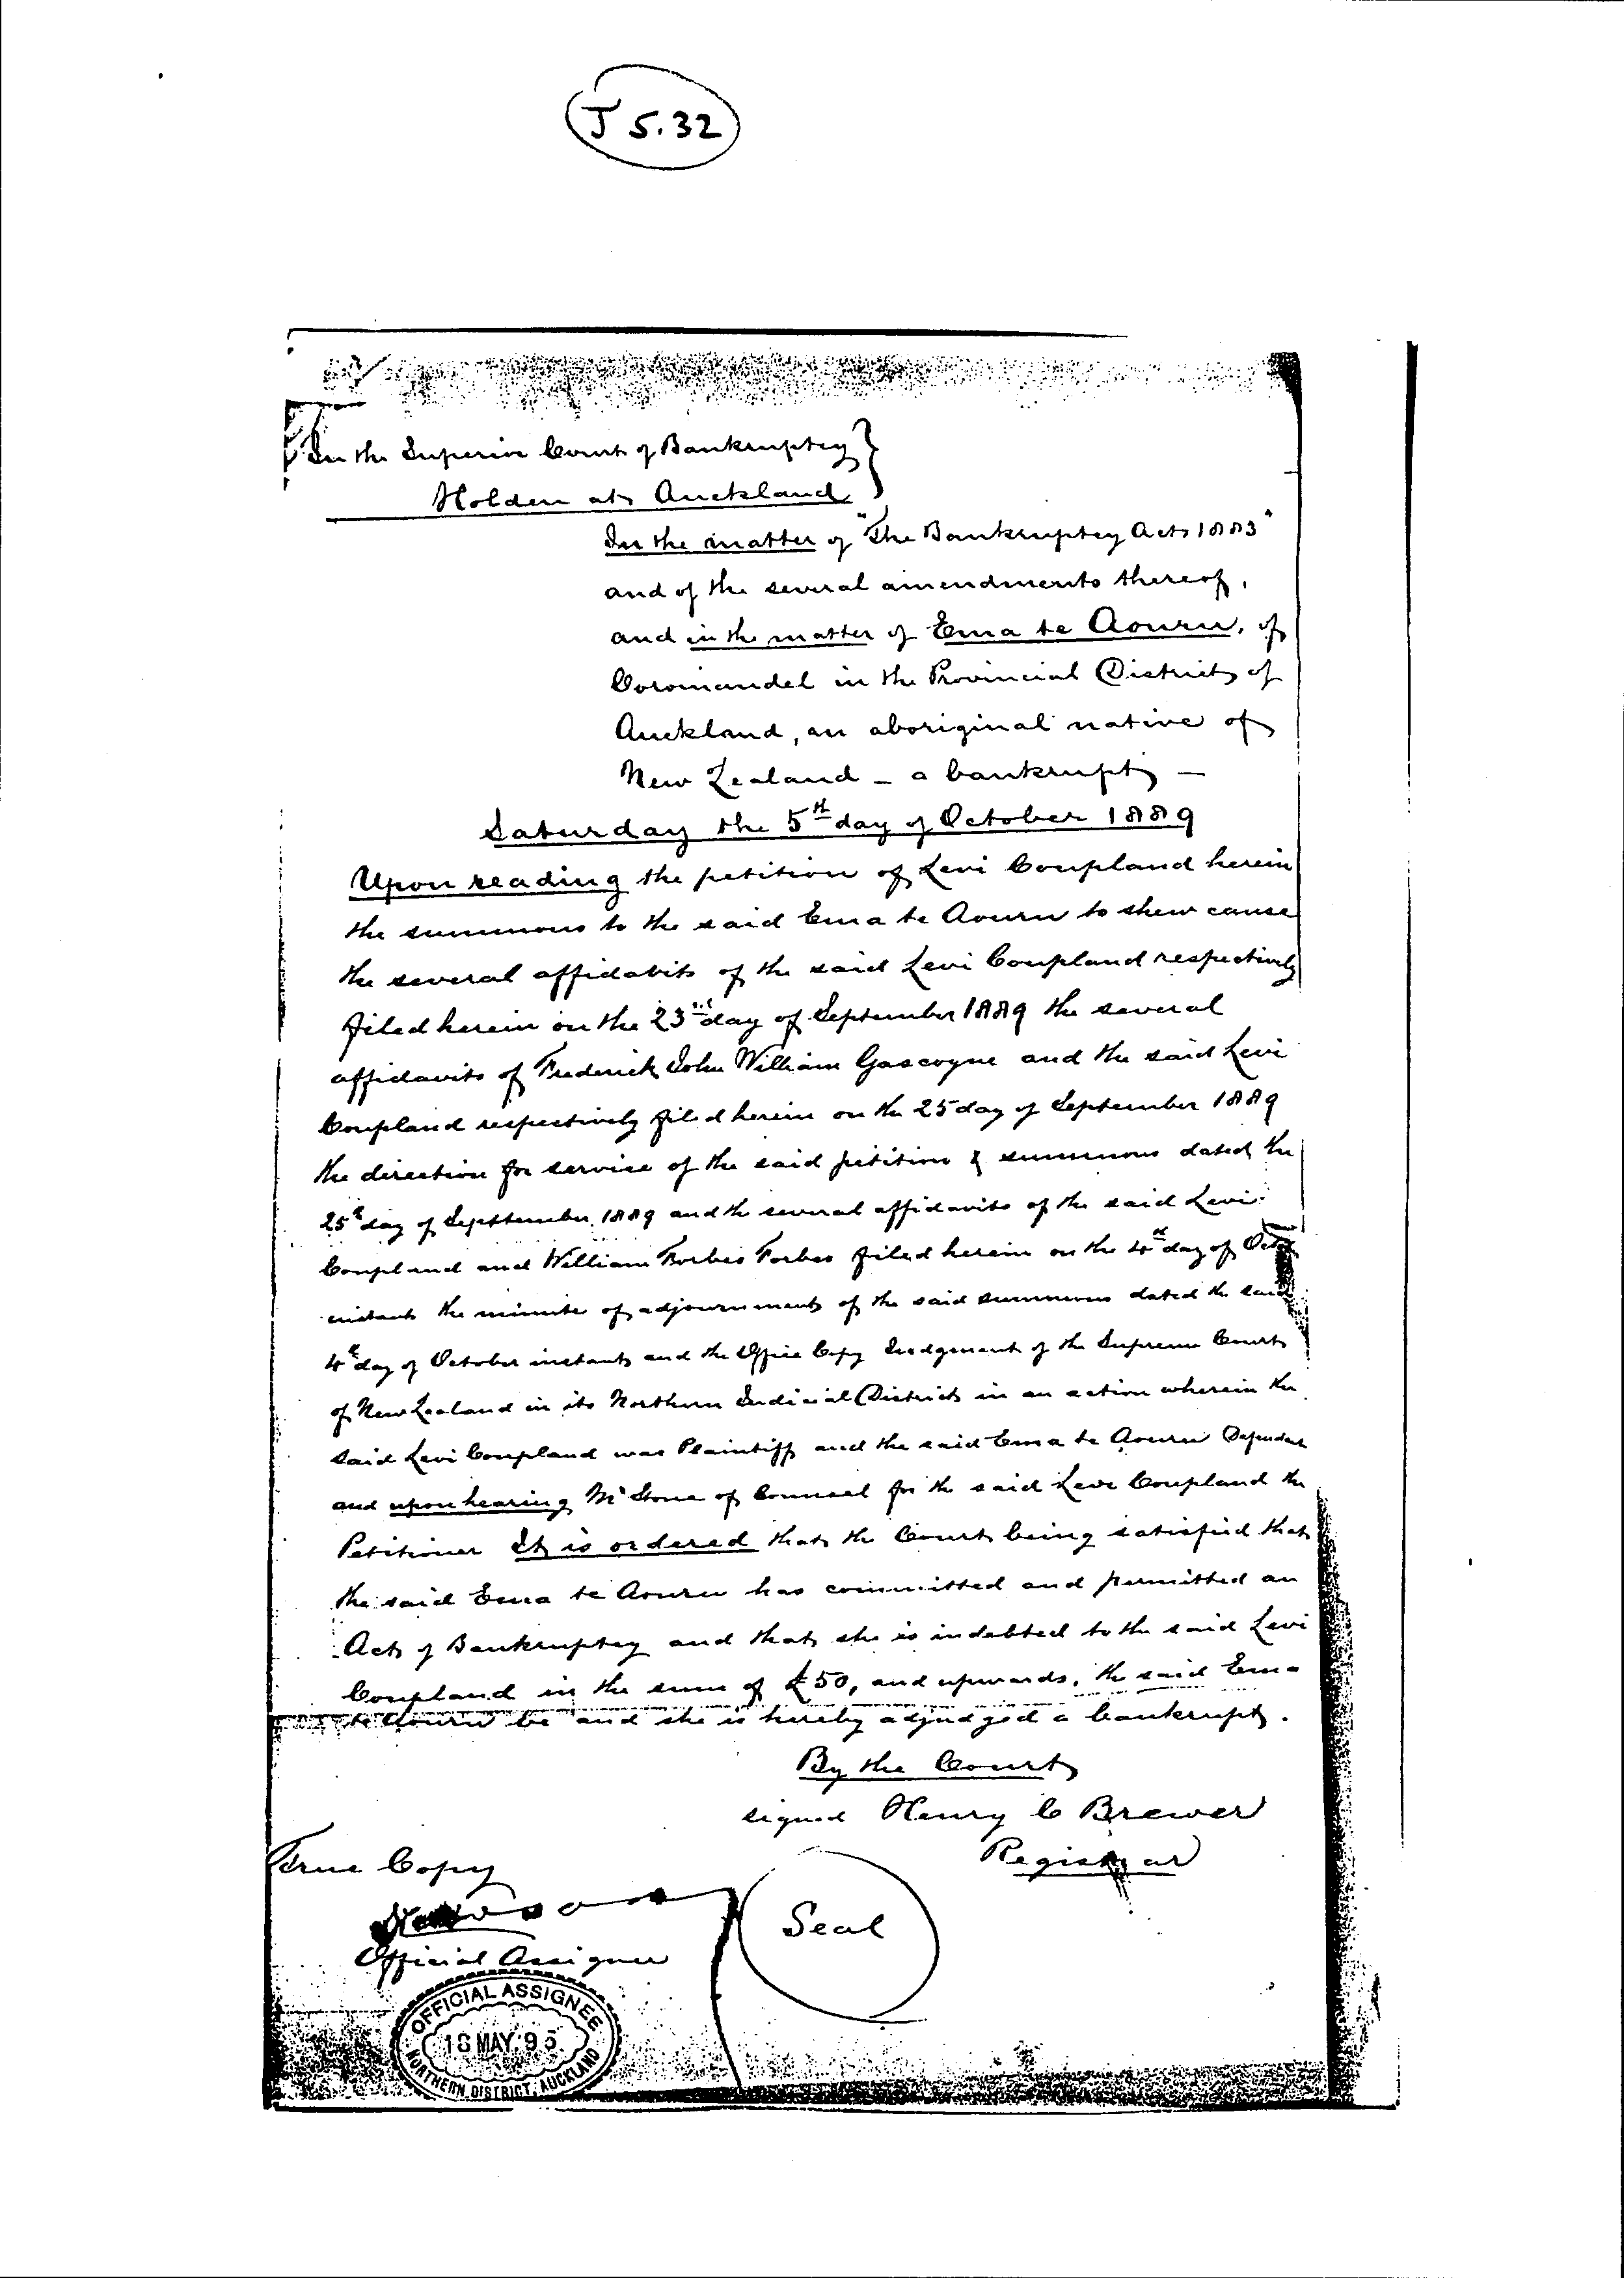 J 5.32
In the Superior Court of Bankruptcy
Holden at Auckland
In the matter of "The Bankruptcy Act 1883"
and of the several amendments thereof,
and in the matter of Ema te Aouru, of
Coromandel in the Provincial District of
Auckland, an aboriginal native of
New Zealand - a bankrupt -
Saturday the 5th day of October 1889
Upon reading the petition of Levi Coupland herein
the summons to the said Ema te Aouru to shew cause
the several affidavits of the said Levi Coupland respectively
filed herein on the 23rd day of September 1889 the several
affidavits of Frederick John William Gascoyne and the said Levi
Coupland respectively filed herein on the 25 day of September 1889
the direction for service of the said petition & summons dated the
25th day of Septtember 1889 and the several affidavits of the said Levi
Coupland and William Forbes Forbes filed herein on the 4th day of Octr
instant the minute of adjournment of the said summons dated the said
4th day of October instant and the Office Copy Judgment of the Supreme Court
of New Zealand in its Northern Judicial District in an action wherein the
said Levi Coupland was Plaintiff and the said Ema te Aouru Defendant
and upon hearing Mr Stone of Counsel for the said Levi Coupland the
Petitioner It is ordered that the Court being satisfied that
the said Ema te Aouru has committed and permitted an
Act of Bankruptcy and that she is indebted to the said Levi
Coupland in the sum of £50, and upwards, the said Ema
te Aouru be and she is hereby adjudged a bankrupt.
By the Court
signed Henry C Brewer
Registrar
True Copy
Seal
Official Assignee
OFFICIAL ASSIGNEE
18 MAY 95
NORTHERN DISTRICT, AUCKLAND